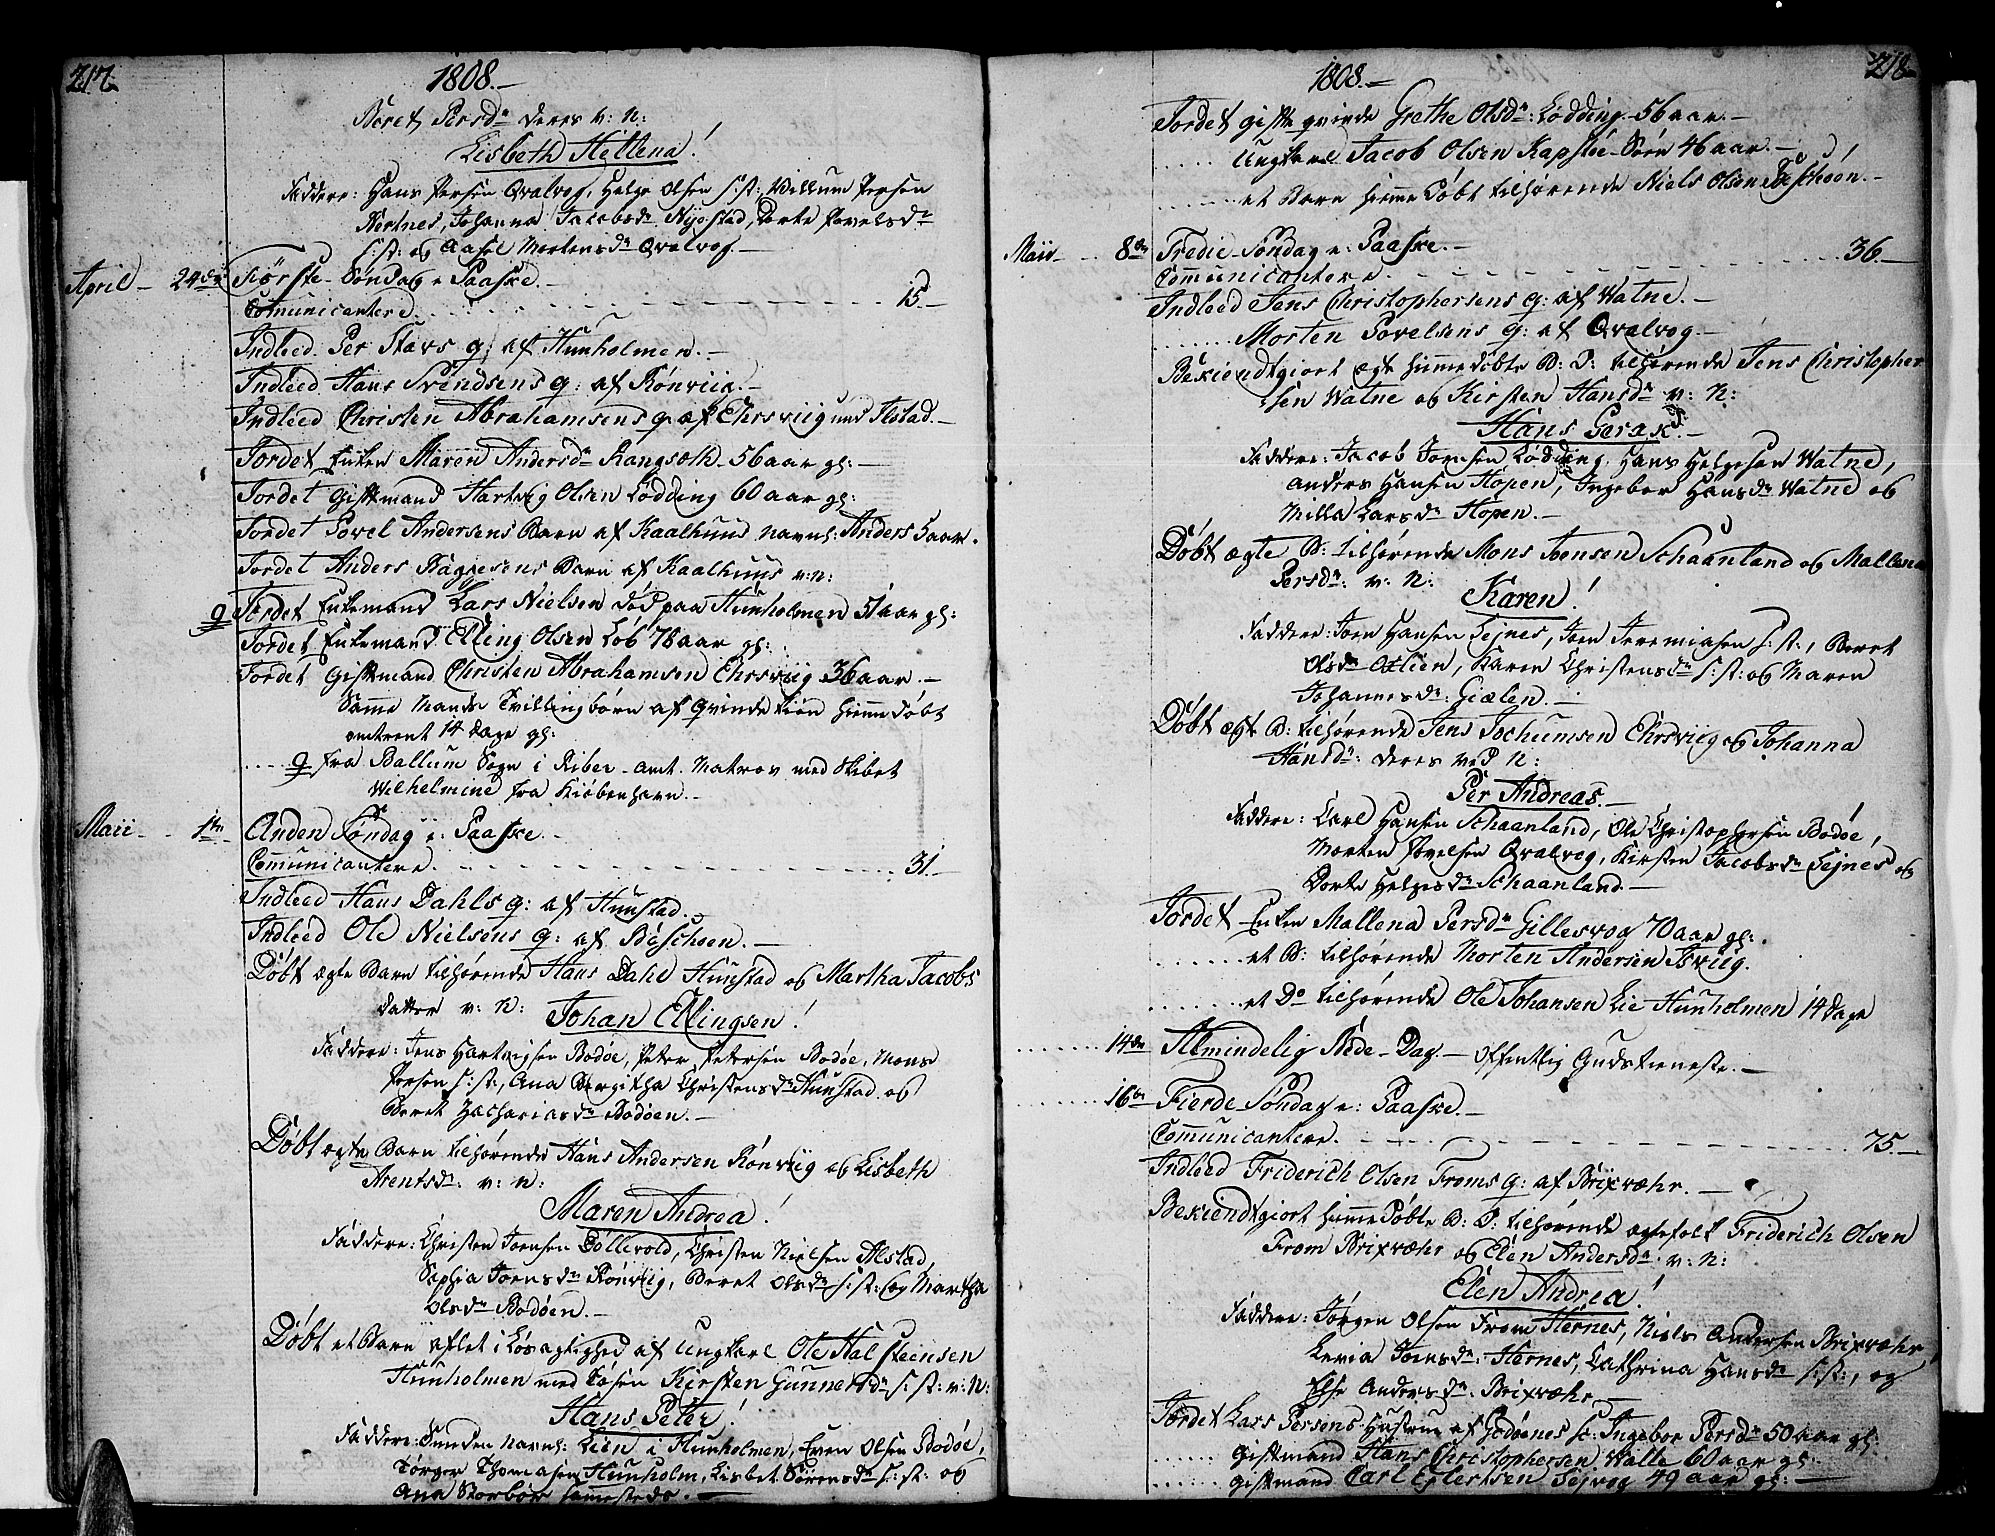 217.
1808.-
Beret Persdr deres v: N:
Lisbeth Hellena!
Faddere: Hans Persen Qvalvog, Helge Olsen s: st:, Villum Persen
Nertnes, Johanna Jacobsdr Nyestad, Dorte Povelsdr
s: st: og Aasel Mortensdr Qvalvog.-
April - 24de Første Søndag e Paaske.-
Comunicantere 15.-
Indleed Per Stavs q: af Hunholmen.-
Indleed Hans Svendsens q: af Rønviig.-
Indleed Christen Abrahamsens q: af Ehrsviig und Ilstad.-
Jordet Enken Maren Andersdr Rangsoth 56 aar gl:-
Jordet Giftmand Hartvig Olsen Lødding 60 aar gl:
Jordet Povel Andersens Barn af Kaalhuus navnl: Anders 5 aar.
Jordet Anders Baggesens Barn af Kaalhuus v: n:
Jordet Enkemand Lars Nielsen død paa Hunholmen 51 aar gl:
Jordet Enkemand Elling Olsen Løb 78 aar gl:
Jordet Giftmand Christen Abrahamsen Ehrsviig 36 aar.-
Samme Mands Tvillingbørn af Qvindekiøn hiemmedøbt
omtrent 14 dage gl:
fra Ballum Sogn i Riber-amt. Matros med Skibet
Wilhelmine fra Kiøbenhavn.-
Maii - 1te Anden Søndag e: Paaske.-
Comunicantere 31.-
Indleed Hans Dahls q: af Hunstad.
Indleed Ole Nielsens q: af Beschoen.-
Døbt ægte Barn tilhørende Hans Dahl Hunstad og Martha Jacobs
datter v: N:
Johan Ellingsen!
Faddere: Jens Hartvigsen Bodøe, Peter Petersen Bodøe, Mons
Persen s: st:, Ana Bergitha Christensdr Hunstad og
Beret Zachariasdr Bodøen.-
Døbt ægte Barn tilhørende Hans Andersen Rønviig og Lisbeth
Arentsdr: v: n:
Maren Andrea!
Faddere: Christen Joensen Bollevold, Christen Nielsen Alstad,
Sophia Joensdr Rønviig, Beret Olsdr s: st: og Martha
Olsdr Bodøen.-
Døbt et Barn avlet i Løsagtighed af Ungkarl Ole Halsteinsen
Hunholmen med Tøsen Kirsten Gunnersdr s: st: v: N:
Hans Peter!
Faddere: Lien i Hunholmen, Even Olsen Bodøe,
Tørger Thomasen Hunholm, Lisbet Sørensdr s: st: og
Ana Storbør sammesteds.-
218.
1808.-
Jordet gifte qvinde Grethe Olsdr: Lødding 56 aar.-
Ungkarl Jacob Olsen Kapstée-Søen 46 aar.-
et Barn hiemmedøbt tilhørende Niels Olsen Beschoen.-
Maii 8de Tredie Søndag e: Paaske.-
Communicantere 36.-
Indleed Jens Christophersens q: af Watne.-
Morten Povelsens q: af Qvalvog.-
Bekiendtgiort ægt hiemmedøbte B: D: tilhørende Jens Christopher
sen Watne og Kirsten Hansdr v: N:
Hans Gerard.-
Faddere: Jacob Joensen Lødding, Hans Helgesen Watne,
Anders Hansen Hopen, Ingebor Hansdr Watne og
Milla Larsdr Hopen.-
Døbt ægte B: tilhørende Mons Joensen Schaanland og Mallena
Persdr: v: N:
Karen!
Faddere: Joen Hansen Sejnes, Joen Jeremiasen s: st:, Beret
Olsdr Olsøen, Karen Christensdr s: st: og Maren
Johannesdr: Giælen.-
Døbt ægt B: tilhørende Jens Jochumsen Ehrsviig og Johanna
Hansdr: deres ved N:
Per Andreas.-
Faddere: Carl Hansen Schaanland, Ole Christophersen Bodøe,
Morten Povelsen Qvalvog, Kirsten Jacobsdr Sejnes og
Dorte Helgesdr Schaanland.-
Jordet Enken Mallena Persdr Gillesvog 70 aar gl:
et B: tilhørende Morten Andersen Isviig.
et Do tilhørende Ole Johansen Lie Hunholmen 14 dage
14de Almindelig Bede-Dag.- offentlig Gudstieneste.-
16de Fierde Søndag e: Paaske.-
Communicantere. 75.-
Indleed Friderich Olsen Froms q: af Brixvæhr.-
Bekiendtgiort hiemmedøbte B: D: tilhørende ægtefolk Friderich Olsen
From Brixvæhr og Elen Andersdr: v: n:
Elen Andrea!
Faddere: Jørgen Olsen From Hernes, Niels Andersen Brixvæhr,
Levia Joensdr: Hernes, Cathrina Hansdr s: st:, og
Else Andersdr: Brixvæhr.-
Jordet Lars Persens Hustrue af Godøenes sc: Ingebor Persdr 50 aar gl:
Giftmand Hans Christophersen Valle 60 aar gl:
Giftmand Carl Eglertsen Sejvog 49 aar gl:-